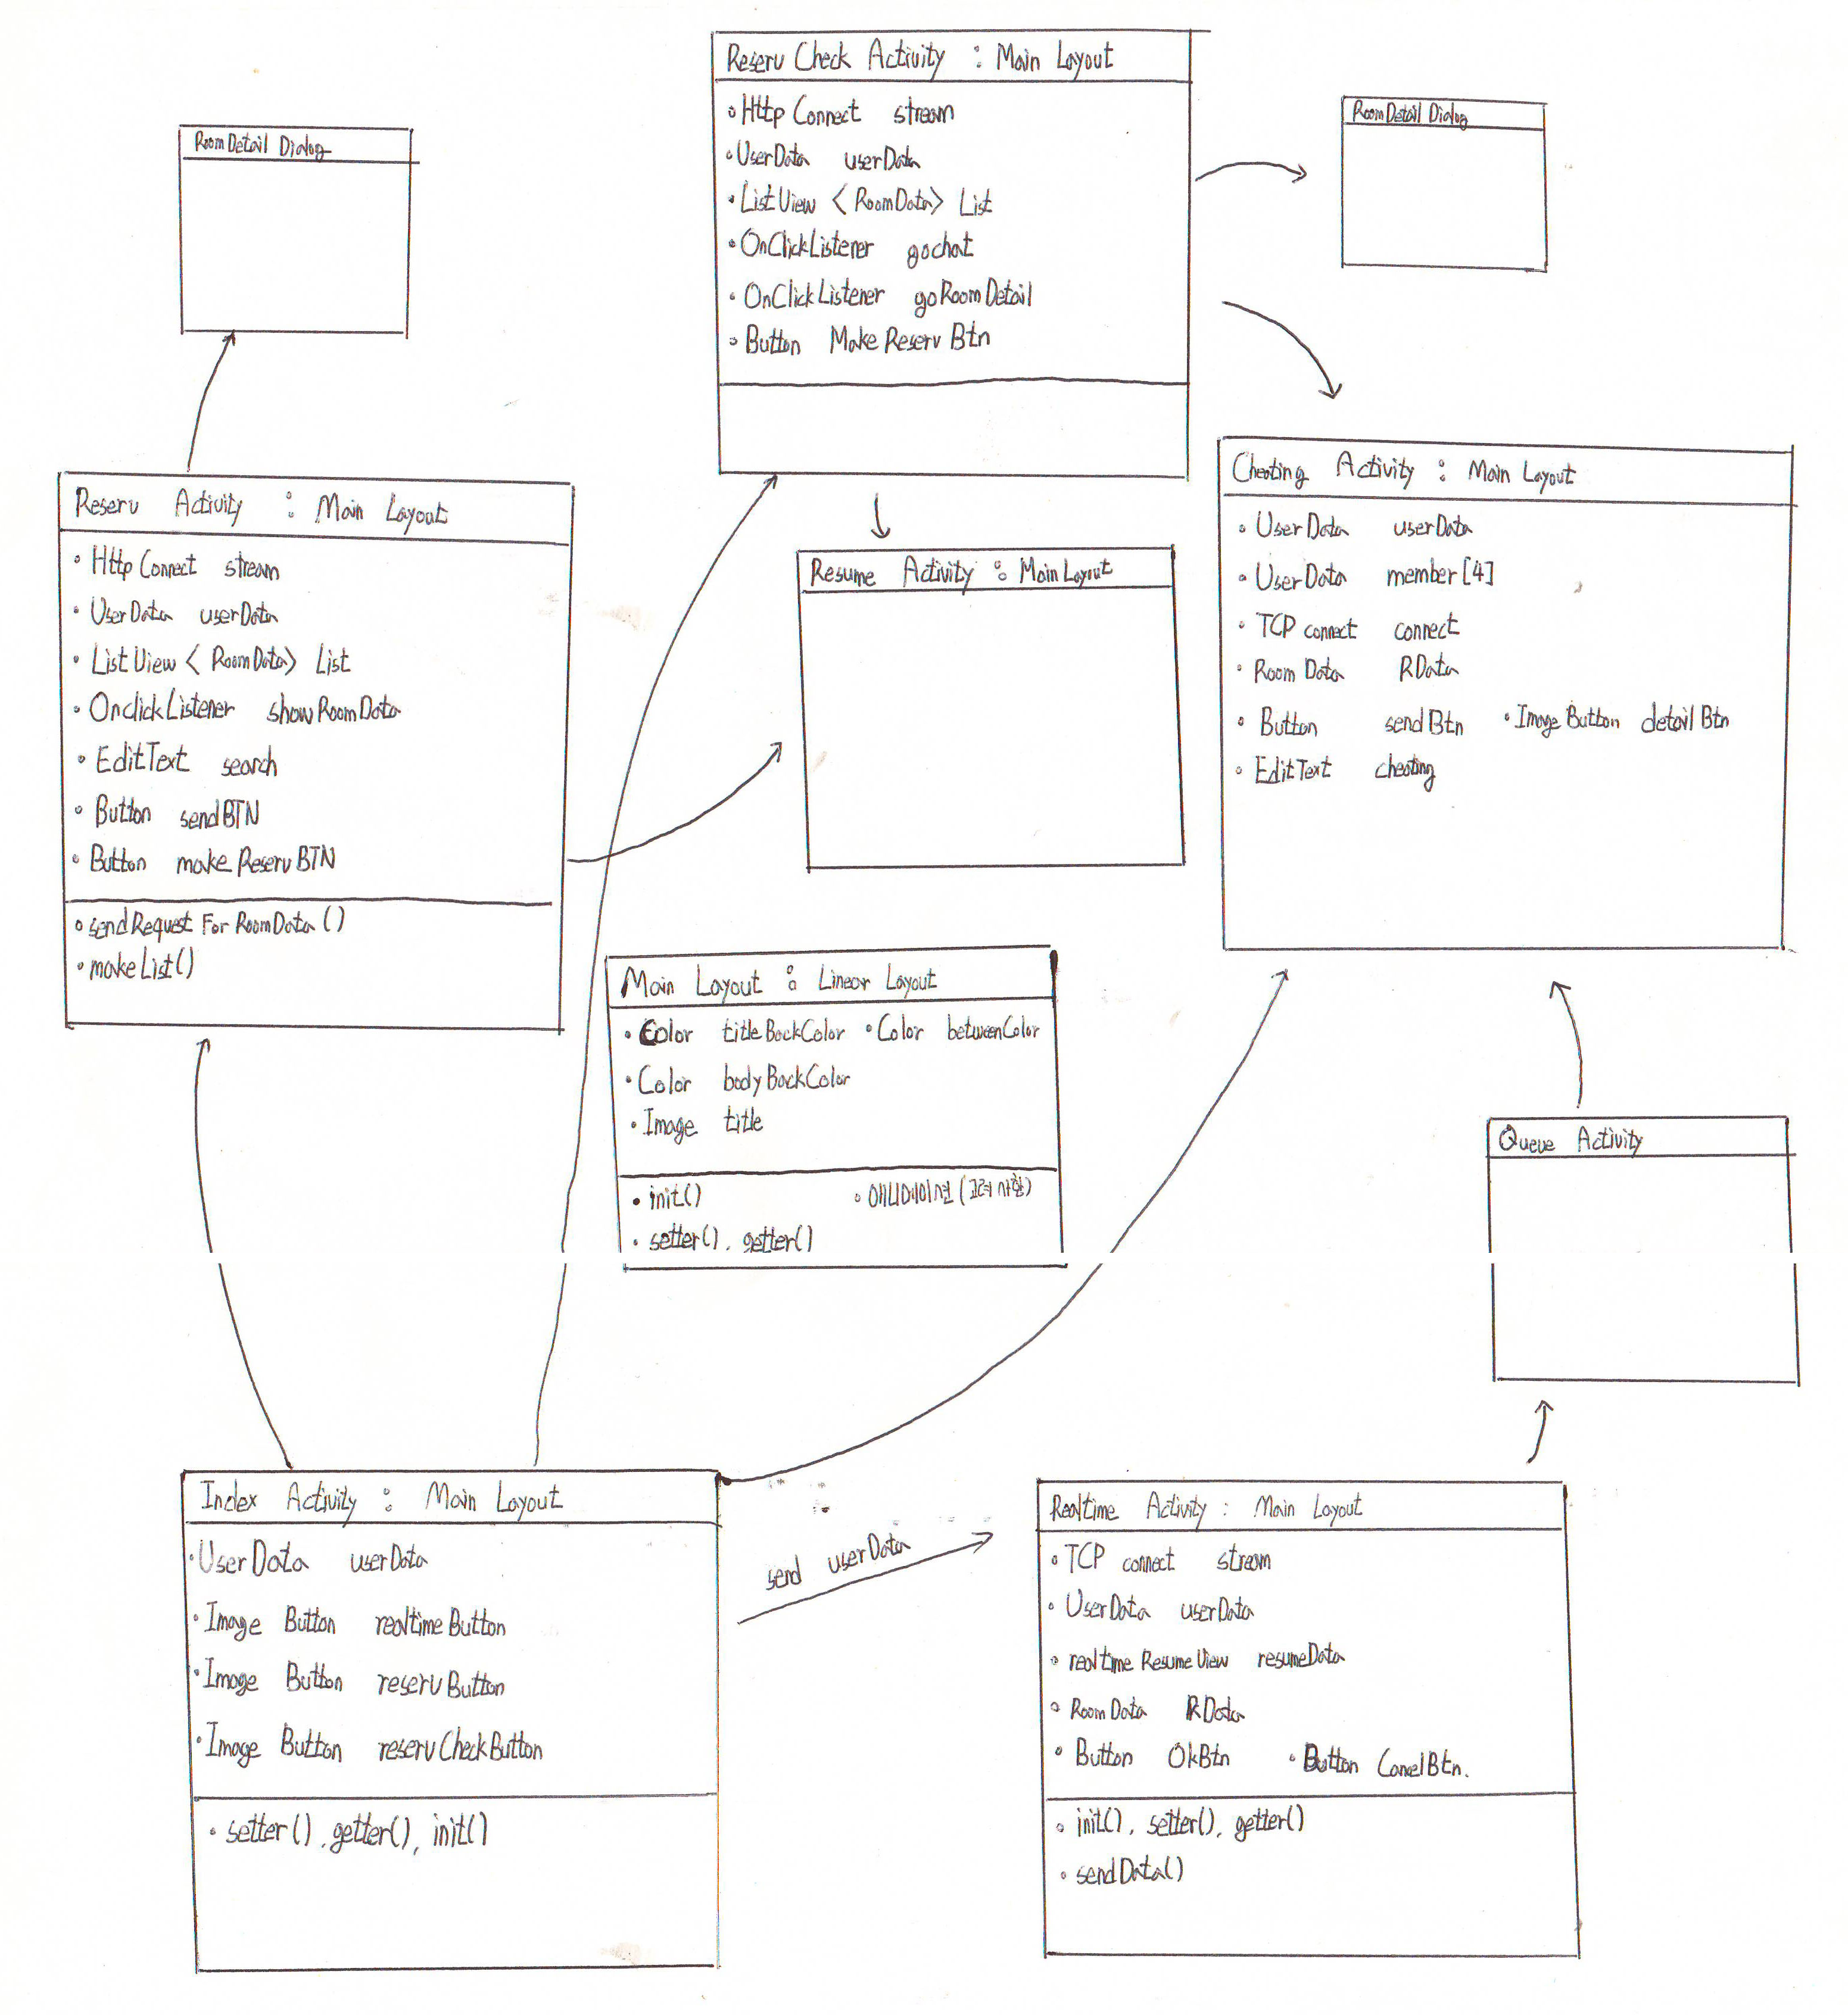 Reserv Check Activity : Main Layout
• Http Connect stream
• UserData userData
• ListView <RoomData> List
• OnClickListener gochat
• OnClickListener goRoomDetail
• Button Make Reserv Btn
RoomDetail Dialog
RoomDetail Dialog
Reserv Activity : Main Layout
• Http Connect stream
• UserData userData
• ListView <RoomData> List
• OnclickListener showRoomData
• EditText search
• Button sendBTN
• Button make Reserv BTN
• sendRequest For RoomData ()
• make List()
Resume Activity : Main Layout
Cheating Activity : Main Layout
• UserData userData
• UserData member [4]
• TCP connect connect
• Room Data RData
• Button sendBtn • Image Button detailBtn
• EditText cheating
Main Layout : Linear Layout
• Color titleBackColor • Color betweenColor
• Color bodyBackColor
• Image title
• init() • 애니메이션 (고려사항)
• setter(), getter()
Queue Activity
Index Activity : Main Layout
• UserData userData
• Image Button realtimeButton
• Image Button reservButton
• Image Button reservCheckButton
• setter(), getter(), init()
send userData
Realtime Activity : Main Layout
• TCP connect stream
• UserData userData
• realtime Resume View resumeData
• RoomData RData
• Button OkBtn • Button CancelBtn.
• init(), setter(), getter()
• sendData()